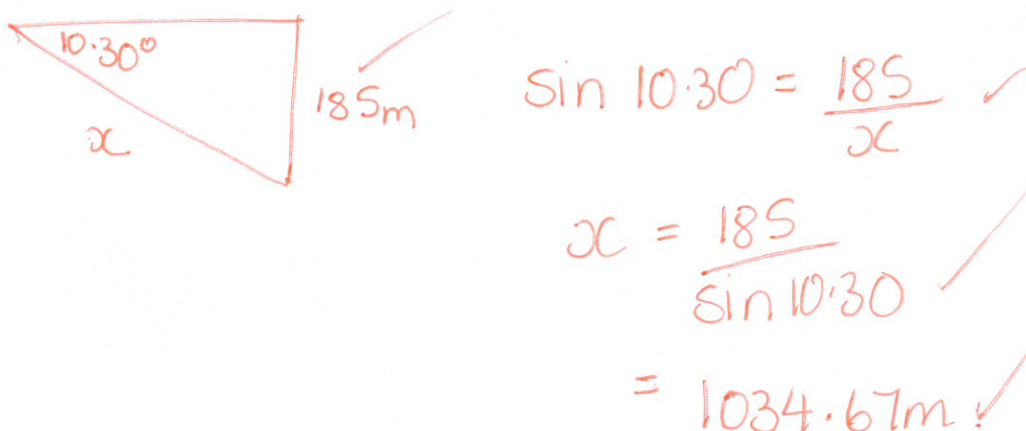 10.30°
185m
x
sin 10.30 = 185/x
x = 185/sin 10.30
= 1034.67m.